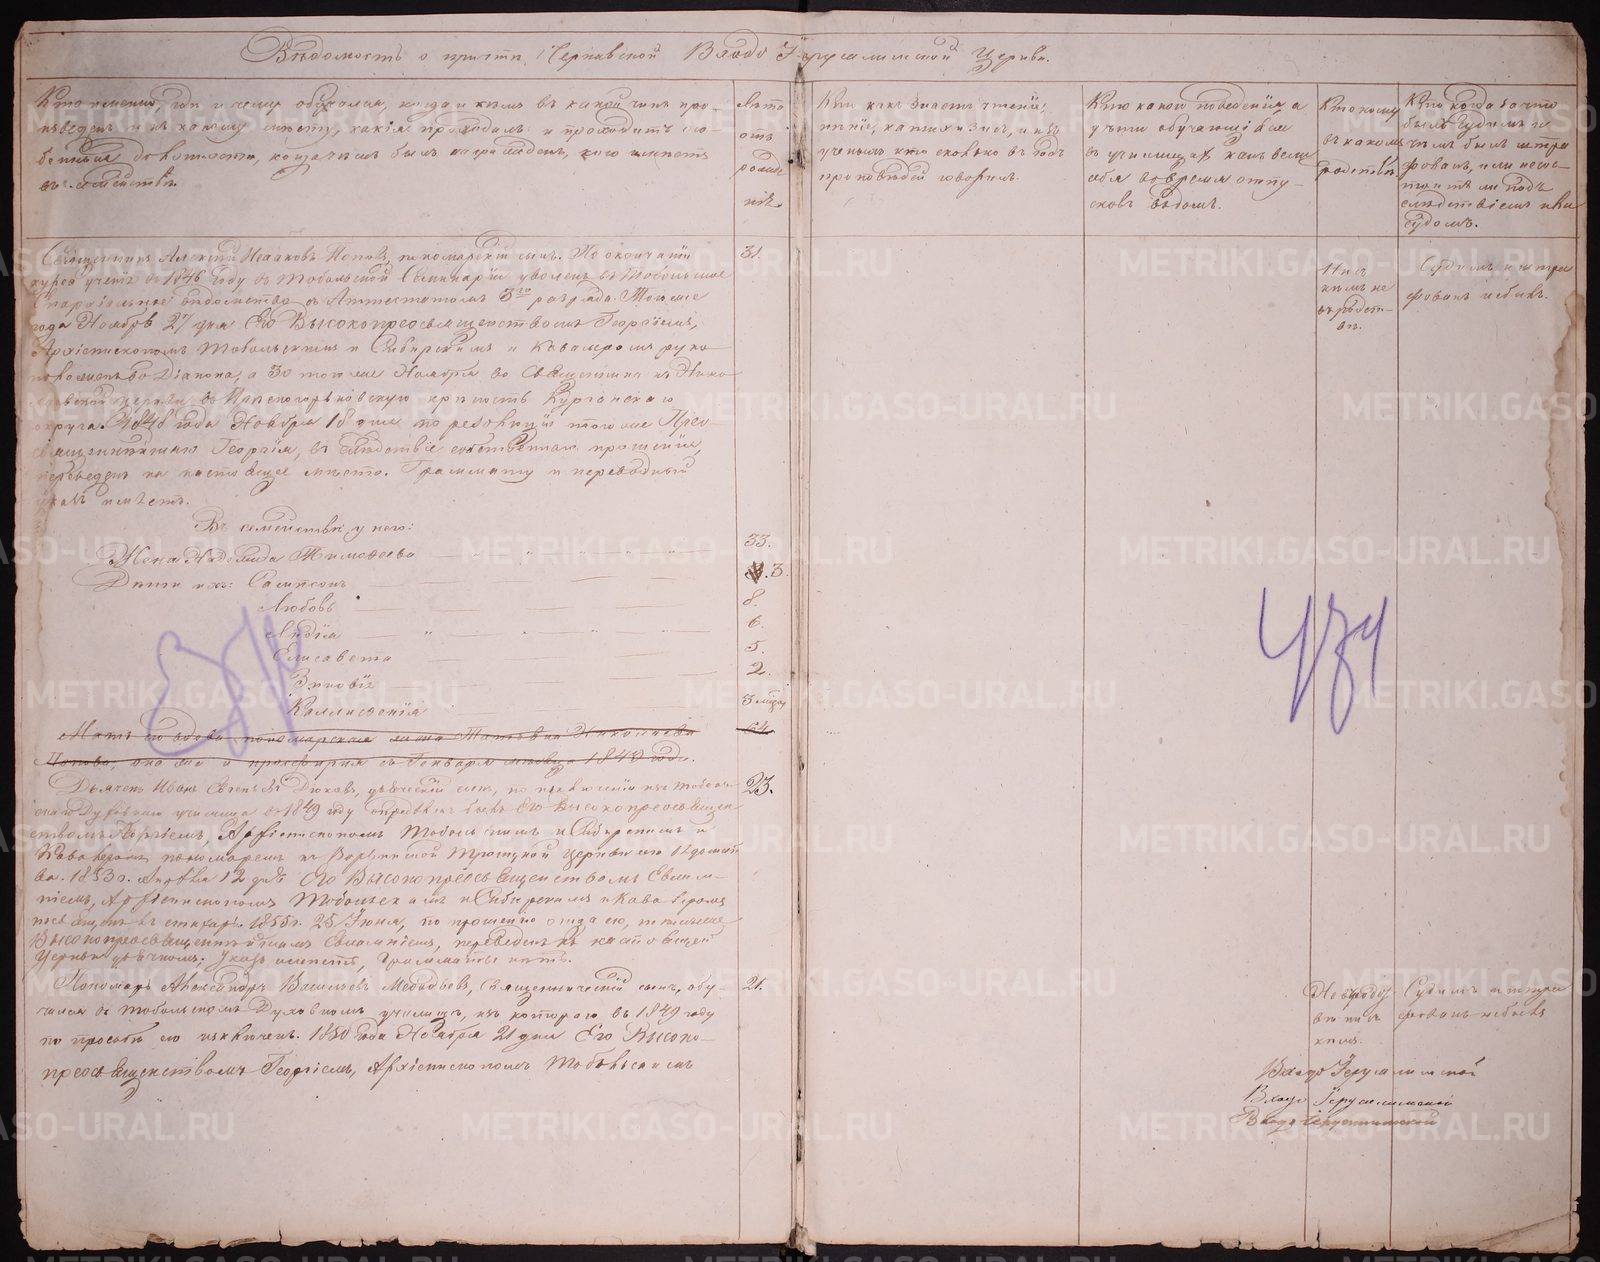 Вѣдомость о причтѣ Чернавской Входо Іерусалимской Церкви.
Кто именно, гдѣ и чему обучался, когда и кѣмъ въ какой чинъ про-
изведенъ и къ какому мѣсту, какія проходилъ и проходитъ осо-
бенныя должности, когда чѣмъ былъ награжденъ, кого имѣетъ
въ семействѣ.
Лѣта
отъ
рожде
нія.
Кто какъ знаетъ чтеніе,
пѣніе, катихизисъ, и изъ
ученыхъ кто сколько въ годъ
проповѣдей говорилъ.
Кто какого поведенія, а
дѣти обучающіеся
въ училищахъ какъ вели
себя во время отпу-
сковъ въ домъ.
Кто кому
въ какомъ
родствѣ.
Кто когда за что
былъ судимъ и
чѣмъ былъ штра
фованъ, или не со-
стоитъ ли подъ
слѣдствіемъ или
судомъ.
Священникъ Алексѣй Попов, пономарскій сынъ. По окончаніи
курса ученія въ 1846 году въ Тобольской Семинаріи уволенъ въ Тобольское
Епархіальное вѣдомство съ Аттестатомъ 3го разряда. Того же
года Ноября 27 дня Его Высокопреосвященствомъ Георгіемъ,
Архіепископомъ Тобольскимъ и Сибирскимъ и Кавалеромъ руко
положенъ во Діакона, а 30 того же Ноября во Священника къ Нико
лаевской церкви, въ крѣпость Курганскаго
округа. 1848 года Ноября 18 дня по резолюціи того же Прео-
священнѣйшаго Георгія, въ слѣдствіе собственнаго прошенія,
переведенъ на настоящее мѣсто. Грамматy и переводный
указъ имѣетъ.
31.
Ни съ
кѣмъ не
въ родст-
вѣ.
Судимъ и штра
фованъ не былъ.
Въ семействѣ у него:
Жена Надежда Тимофеева 33.
Дѣти ихъ: Сампсонъ 3.
Любовь 8.
Лидія 6.
Елисавета 5.
Зиновія 2.
Каллисфенія 3 мѣсяц
Мать его вдова пономарская жена Татьяна Николаева 64.
Попова, она же и просфирня съ Генваря мѣсяца 1849 года.
Дьячекъ Иванъ дьяческій сынъ, по исключеніи изъ Тоболь-
скаго Духовнаго училища въ 1849 году опредѣленъ былъ Его Высокопреосвящен
ствомъ Георгіемъ, Архіепископомъ Тобольскимъ и Сибирскимъ и
Кавалеромъ пономаремъ къ Троицкой Церкви
1853 г. 12 дня Его Высокопреосвященствомъ Евлам-
піемъ, Архіепископомъ Тобольскимъ и Сибирскимъ и Кавалеромъ
посвященъ въ стихарь. 1855 г. 25 Іюня, по прошенію отца его, тѣмъ же
Высокопреосвященнѣйшимъ Евлампіемъ, переведенъ къ настоящей
Церкви дьячкомъ; Указъ имѣетъ, Грамматы нѣтъ.
23.
Пономарь Александръ Васильевъ Меѳодьевъ, Священническій сынъ, обу-
чался въ Тобольскомъ Духовномъ училищѣ, изъ котораго въ 1849 году
по просьбѣ его исключенъ. 1850 года Ноября 21 дня Его Высоко-
преосвященствомъ Георгіемъ, Архіепископомъ Тобольскимъ
21.
Не въ родст
вѣ ни съ
кѣмъ.
Судимъ и штра
фованъ не былъ
Входо Іерусалимской
Входо Іерусалимской
Входо Іерусалимской
METRIKI.GASO-URAL.RU